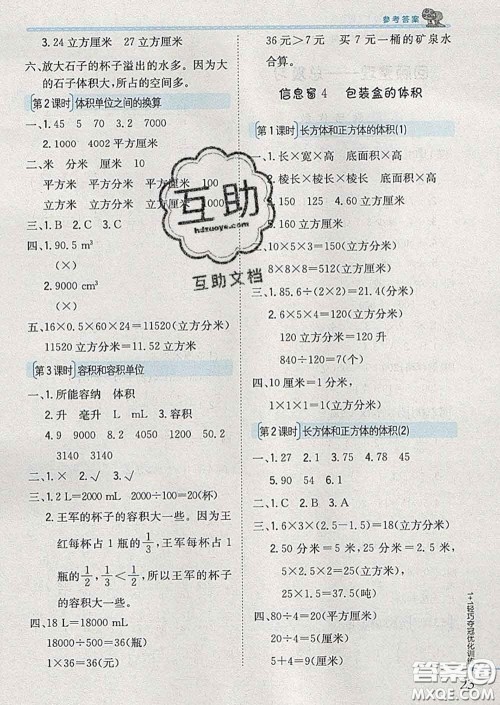 参考答案
3.24 立方厘米 27 立方厘米
六、放大石子的杯子溢出的水多。因为大
的石子体积大,所占的空间多。
第2课时 体积单位之间的换算
一、1.45 5 70 3.2 7000
2.1000 4002 平方厘米
二、米 分米 厘米
平方米 平方分米 平方厘米 100
立方米 立方分米 立方厘米 1000
三、1.B 2.A 3.C
四、1.90.5 m³
(×)
2.9000 cm³
(×)
五、16×0.5×60×24=11520(立方分米)
11520 立方分米=11.52 立方米
第3课时 容积和容积单位
一、1.所能容纳 体积
2.升 毫升 L mL 1000
4.9 9000 2 2000 5.2 5200
3140 3140
二、1.× 2.√ 3.√
三、1.2 L=2000 mL 2000÷100=20(杯)
2.王军的杯子的容积大一些。因为王
红每杯占 1 瓶的1/3,王军每杯占 1 瓶
的1/2,1/3<1/2,所以王军的杯子的容
积大一些。
四、18 L=18000 mL
18000÷500=36(瓶)
1×36=36(元)
36元>7元 买7元一桶的矿泉水
合算。
信息窗4 包装盒的体积
第1课时 长方体和正方体的体积(1)
一、1.长×宽×高 底面积×高
2.棱长×棱长×棱长 底面积×高
3.75 125 4.60 立方厘米
5.160 立方厘米
二、10×5×3=150(立方分米)
8×8×8=512(立方厘米)
三、1.85.6÷(2×2)=21.4(分米)
2.6×5×4=120(立方分米)
120 立方分米=120 升
3.50÷10×72=360(立方厘米)
四、10 厘米=1 分米
1×1×1=1(立方分米)
第2课时 长方体和正方体的体积(2)
一、1.27 2.1 3.75 4.78 45
5.90 54 6.1
二、1.C 2.B 3.A
三、1.6×3×(2.5-1.5)=18(立方分米)
2.50 分米=5 米 25 厘米=0.25 米
5×0.25=1.25(立方米)
1.25×20=25(吨)
四、80÷4=20(平方厘米)
20÷5=4(厘米)
5+4=9(厘米)
1+1轻巧夺冠优化训练
互助
hdzuoye.com
互助文档
答案圈
MXQE.COM